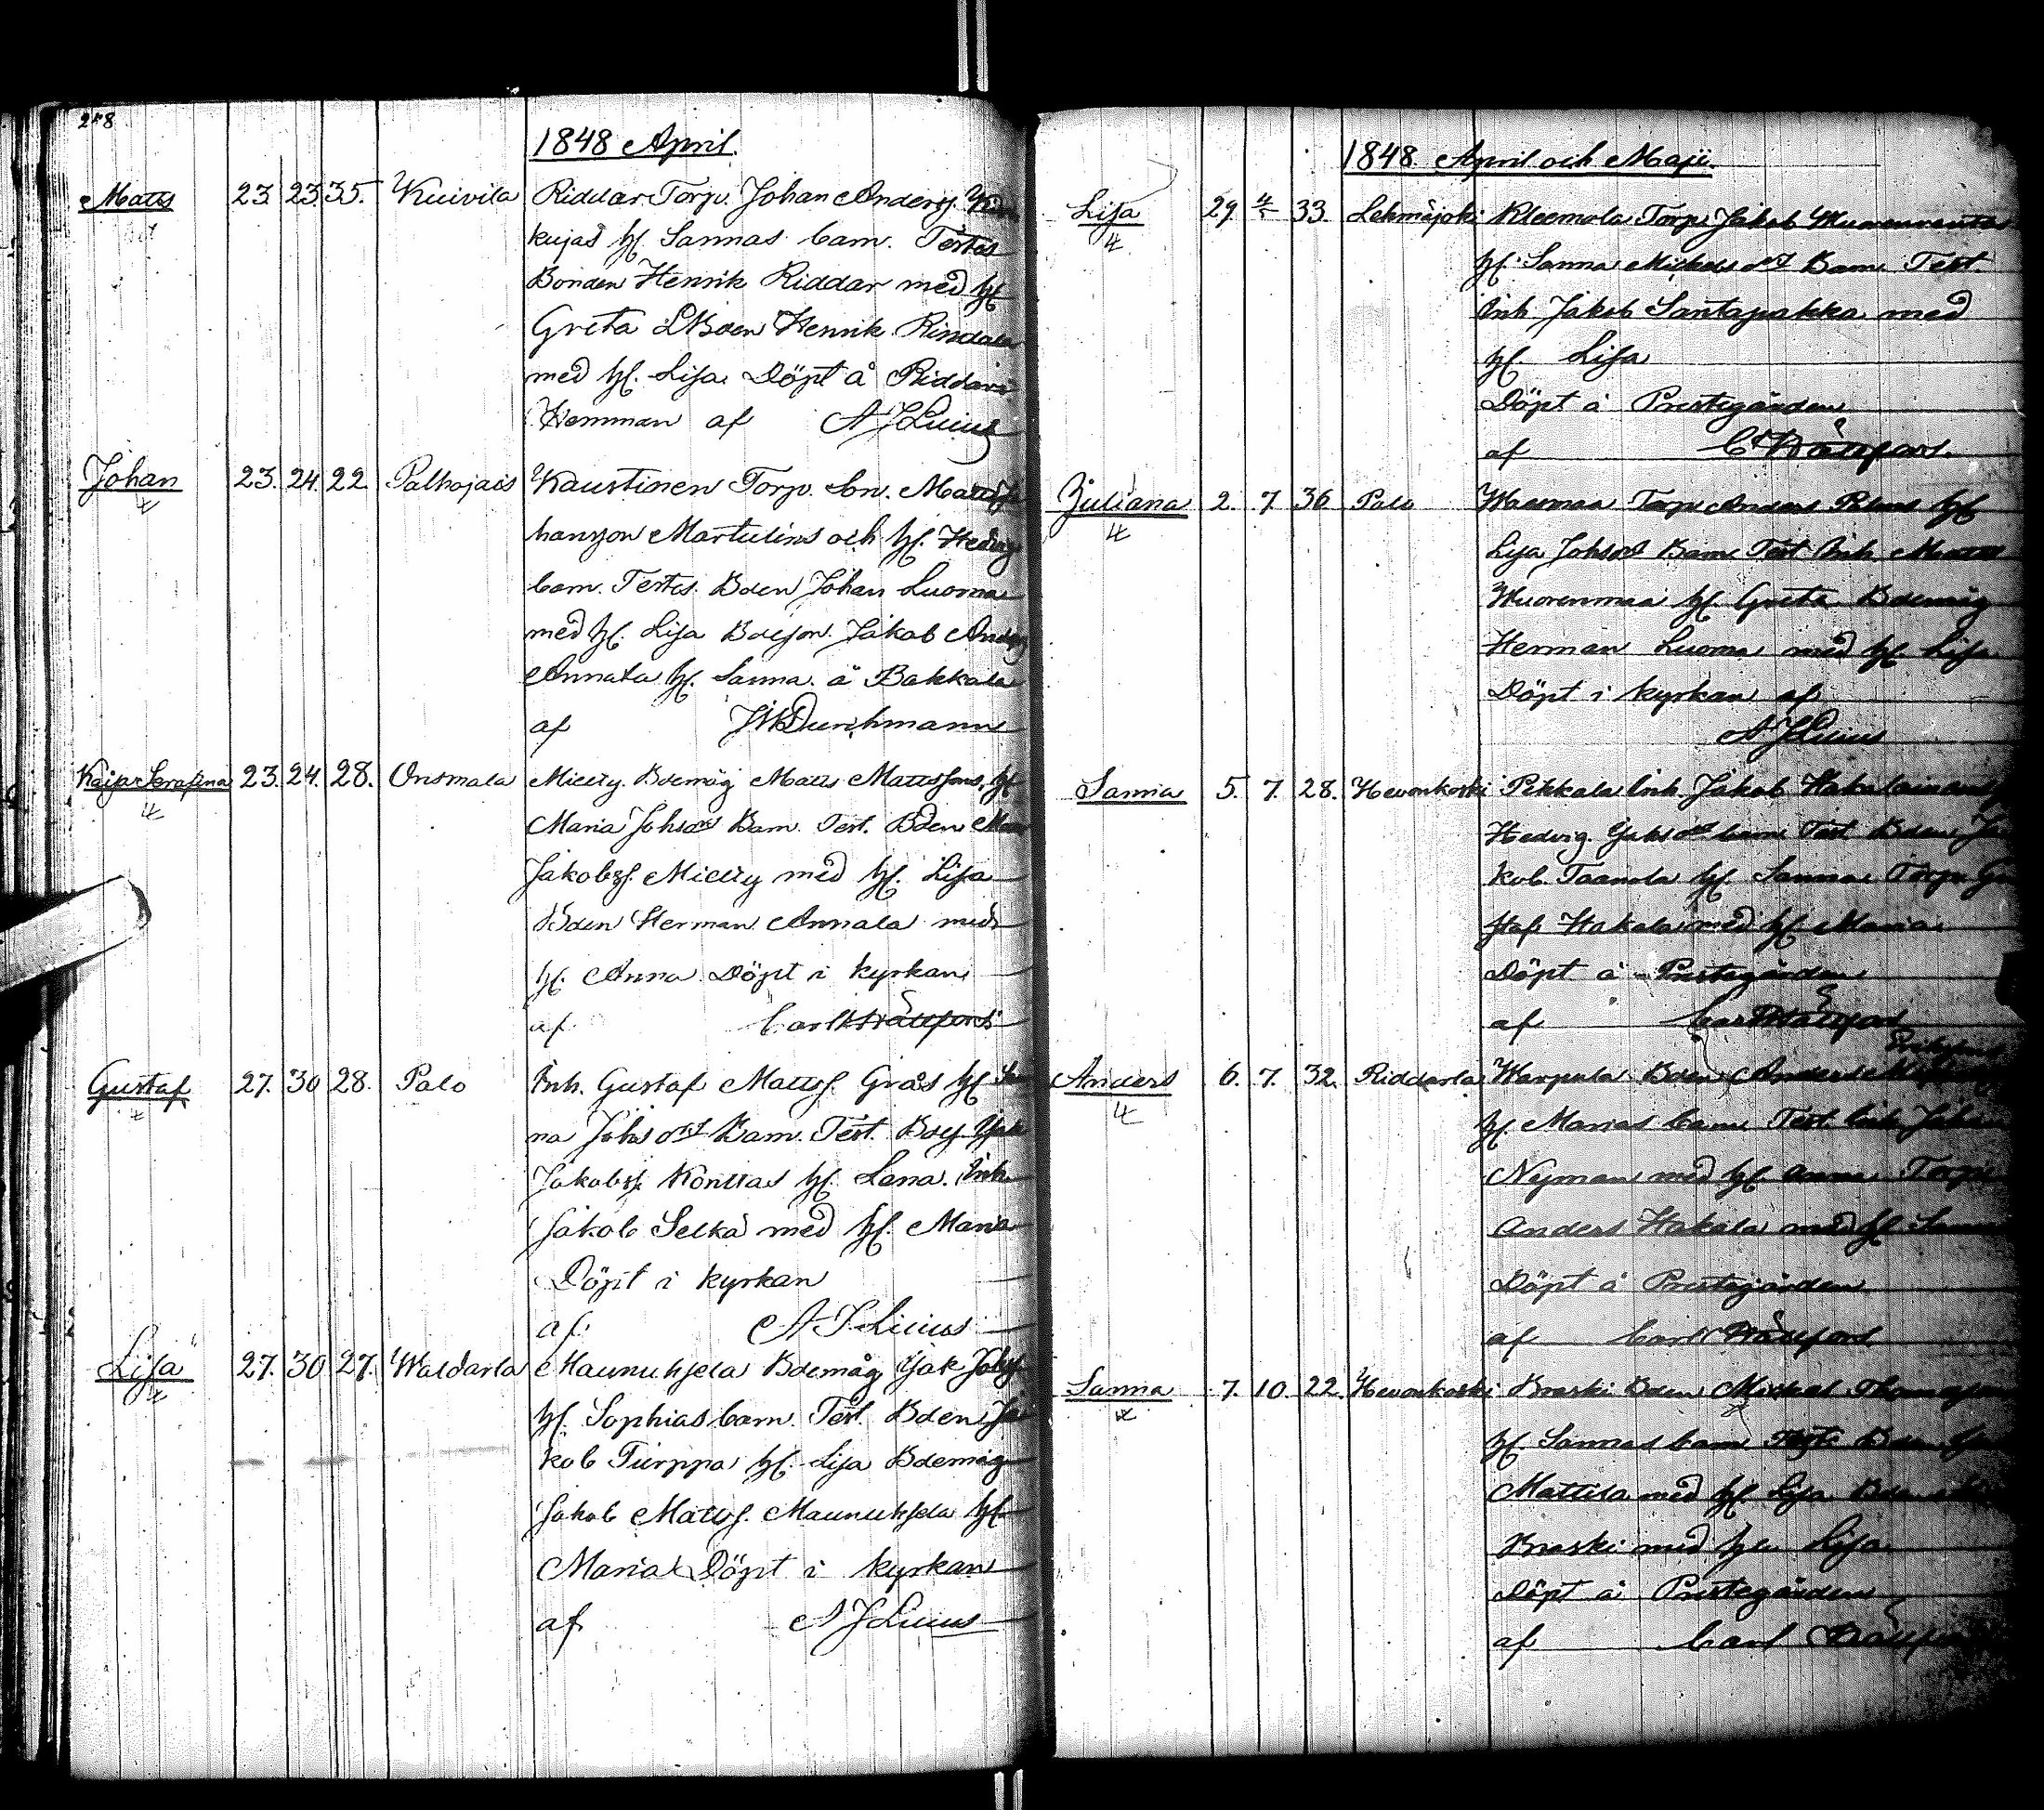 1848 April.
Matts 23 23 35. Kuivila Riddar Torp. Johan Anderss.
kujas hf. Sannas barn. Testes
Bonden Henrik Riddar med hf
Greta LBden Henrik Rindala
med hf. Lisa. Döpt å Riddari
Hemman af AJLucius
Johan 23. 24. 22 Palhojais Kaustinen Torp. Son. Matts Jo
hansson Martulins och hf. Hedvig
barn. Testes. Bden Johan Luoma
med hf. Lisa Bdeson. Jakob Anders
Annala hf. Sanna. å Bakkala
af Durchmann
Kaisa Serafina 23. 24. 28. Onsmala Miety. Bdemåg Matts Mattssons, hf
Maria Johsdrs Barn. Test. Bden
Jakobss. Miety med hf. Lisa
Bden Herman Annala med
hf. Anna Döpt i kyrkan
af Carl
Gustaf 27. 30 28. Palo Inh. Gustaf Mattss. Grås hf San
na Johsdrs Barn. Test. Bdes Jak
Jakobss. Konttas hf. Lena. Inh.
Jakob Selkä med hf. Maria
Döpt i kyrkan
af A J Lucius
Lisa 27. 30 27. Waldarla Maunuksela Bdemåg Jak Johss
hf. Sophias barn. Test. Bden Ja
kob Turppa hf. Lisa Bdemåg
Jakob Mattss. Maunuksela hf
Maria Döpt i kyrkan
af A J Lucius
1848. April och Maji.
Lisa 29 4/5 33. Lehmäjoki Kleemola Torp. Jakob
hf. Sanna Mickelsdrs Barn Test.
Inh. Jakob Santapakka med
hf. Lisa
Döpt å Prestegården
af
Juliana 2. 7 36 Palo Waermaa Torp. Anders hf
Lisa Johsdrs Barn Test Inh. Matts
Wuorenmaa hf. Greta Bdemåg
Herman Luoma med hf. Lisa
Döpt i kyrkan af
A J Lucius
Sanna 5. 7. 28. Hevonkoski Pikkala Inh. Jakob
Hedvig Jaksdrs barn Test Bden Ja
kob Taanola hf. Sanna Torp. Gu
staf Hakala med hf Maria.
Döpt å Prestegården
af Carl
Anders 6. 7. 32. Riddarla Warpula Bden Anders
hf. Marias barn Test. Inh Johan
Nyman med hf. Anna Torp.
Anders Hakala med hf Sanna
Döpt å Prestegården
af Carl
Sanna 7. 10. 22. Hevonkoski Braski Bden Mickel Thomasson
hf. Sannas barn Test. Bden
Mattila med hf. Lisa
Braski med hf. Lisa
Döpt å Prestegården
af Carl